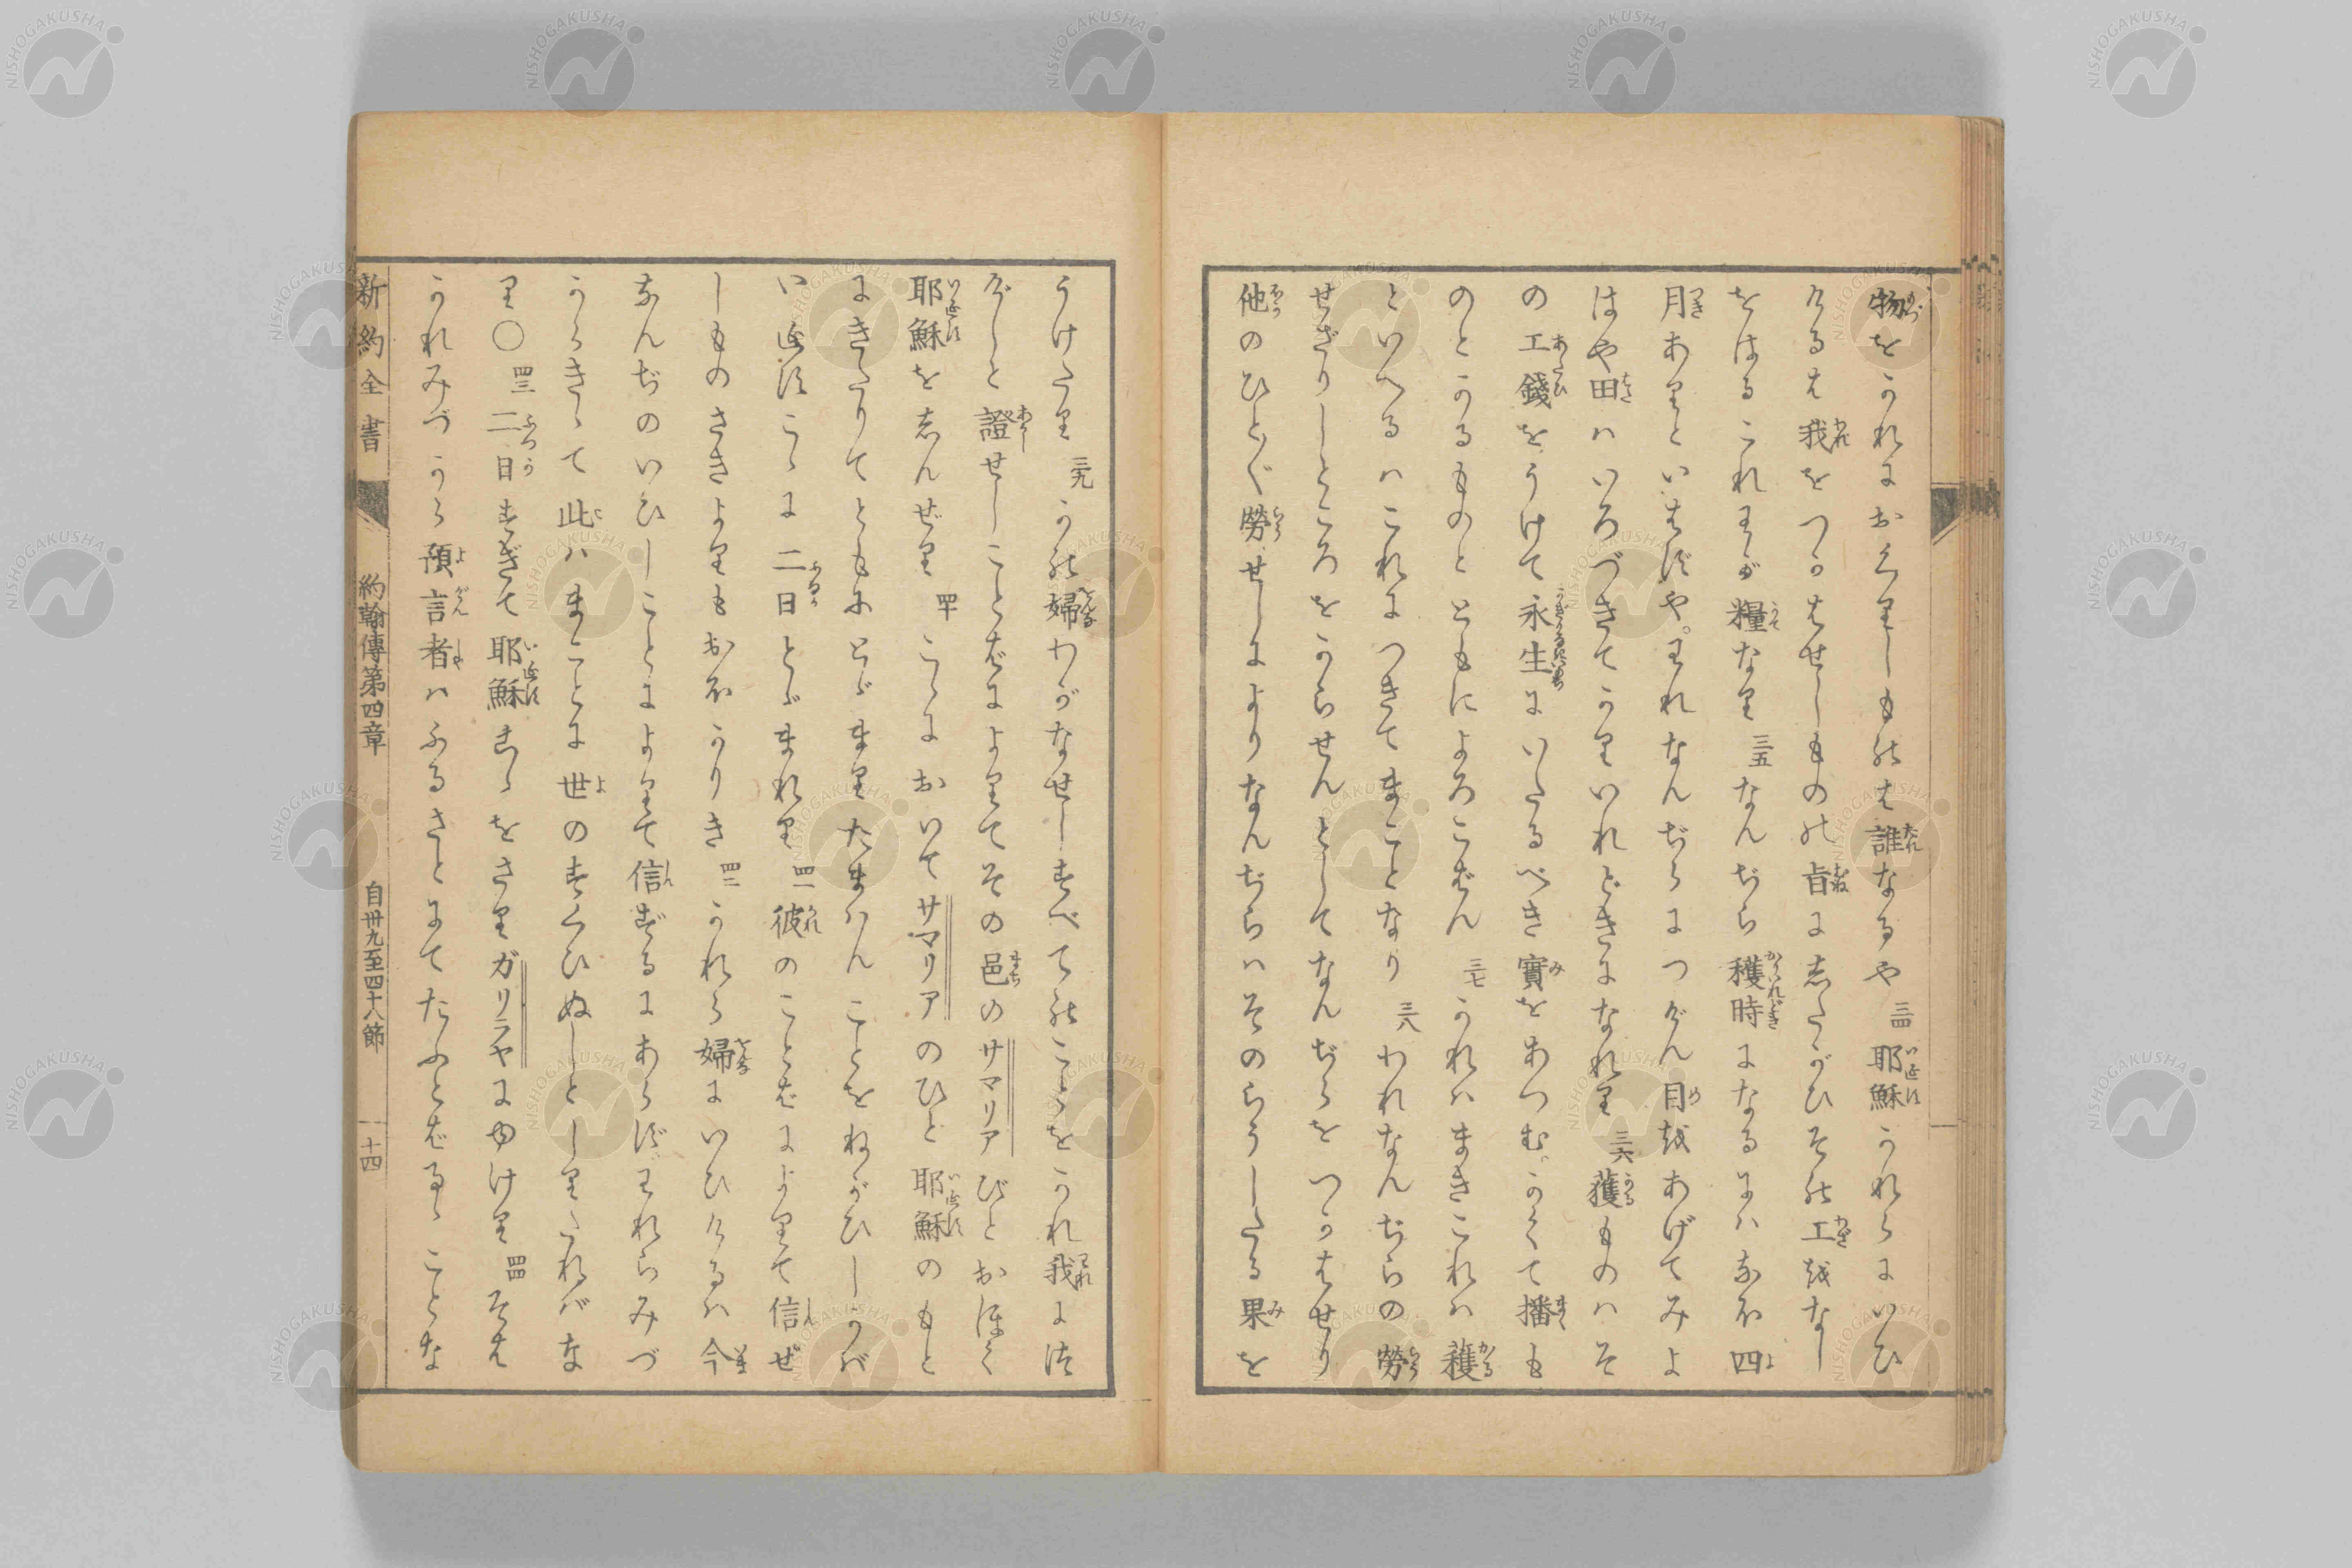 物をかれにおくりしものは誰なるや 三四 耶穌かれらにいひ
けるは我をつかはせしものの旨にしたがひその工をなし
をはるこれわが糧なり 三五 なんぢら穫時になるにハなほ四
月ありといはずや。われなんぢらにつげん目をあげてみよ
はや田ハいろづきてかりいれどきになれり 三六 獲ものハそ
の工錢をうけて永生にいたるべき實をあつむ。かくて播も
のとかるものとともによろこばん 三七 かれハまきこれハ穫
といへるハこれにつきてまことなり 三八 われなんぢらの勞
せざりしところをからせんとしてなんぢらをつかはせり
他のひとゞ勞せしによりなんぢらハそのらうしたる果を
うけたり 三九 かの婦わがなせしすべてのことをかれ我につ
げしと證せしことばによりてその邑のサマリアびとおほく
耶穌をしんぜり 四十 こゝにおいてサマリアのひと耶穌のもと
にきたりてともにとゞまりたまハんことをねがひしかバ
いゑすこゝに二日とゞまれり 四一 彼のことばによりて信ぜ
しものさきよりもおほかりき 四二 かれら婦にいひけるハ今
なんぢのいひしことによりて信ずるにあらずわれらみづ
からきゝて此ハまことに世のすくひぬしとしりたれバな
り〇 四三 二日すぎて耶穌こゝをさりガリラヤにゆけり 四四 そは
かれみづから預言者ハふるさとにてたふとばるゝことな
新約全書 約翰傳第四章 自卅九至四十八節 十四
NISHOGAKUSHA